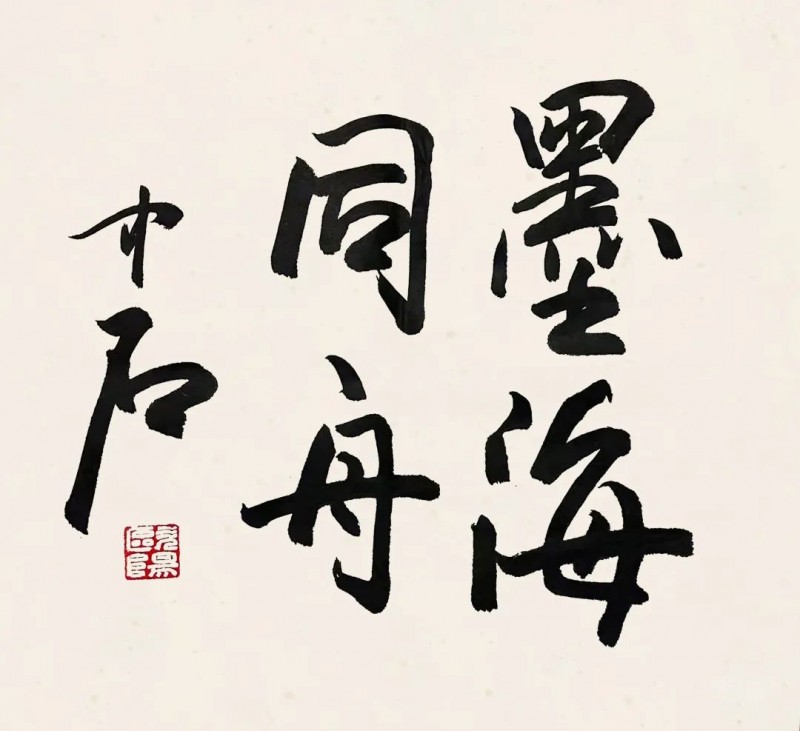 墨海
同舟
中石